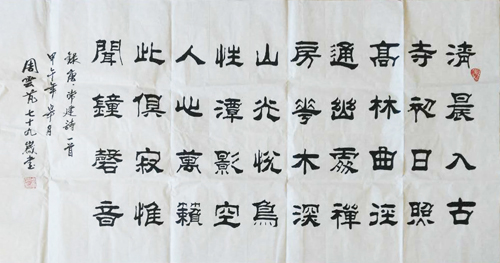 清晨入古
寺初日照
高林曲徑
通幽處禪
房花木深
山光悅鳥
性潭影空
人心萬籟
此俱寂惟
聞鐘磬音
錄唐常建詩一首
甲午年 月
周雲 七十九歲書